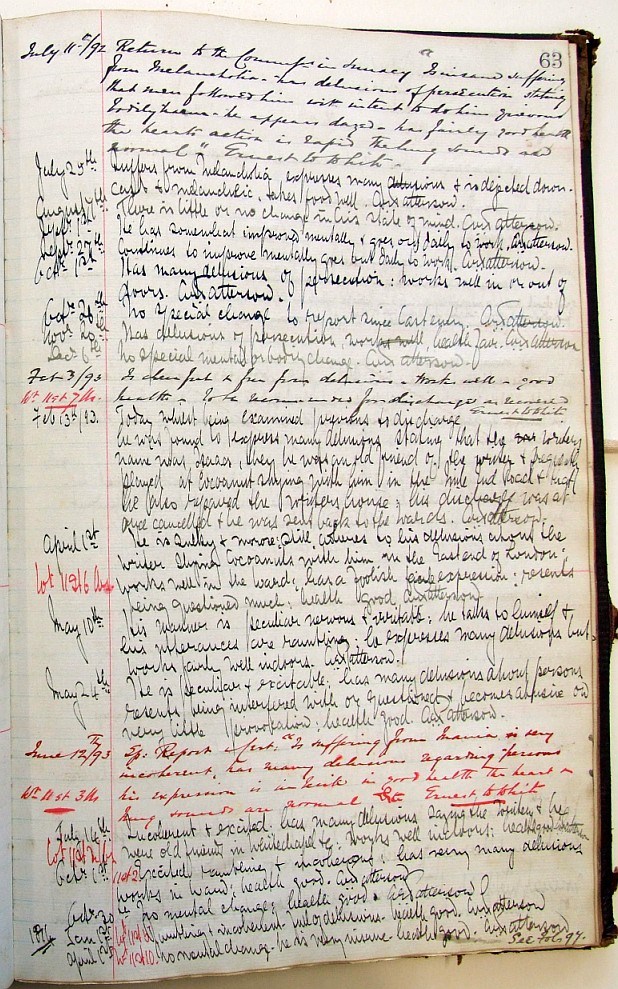 63
July 11th/92 Return to the Commrs in Lunacy "Is insane suffering
from Melancholia - has delusions of persecution stating
that men followed him with intent to do him grievous
bodily harm - he appears dazed - has fairly good health
the hearts action is rapid the lung sounds are
normal" Ernest W White.
July 25th Suffers from Melancholia, expresses many delusions & is dejected down-
cast & melancholic, takes food well.
August 7th There is little or no change in his state of mind.
Sept. He has somewhat improved mentally & goes out daily to work.
Sept. 27th Continues to improve mentally goes out daily to work.
Octr. Has many delusions of persecution: works well in or out of
doors.
Octr. 26th No special change to report since last entry.
Novr. 20th Has delusions of persecution, works well, health fair.
Decr. 6th No special mental or bodily change.
Feb 3/93 Is cheerful & free from delusions - Works well - good
Wt. 11st 7 lbs. health - To be recommended for discharge as recovered
Ernest W White
Feb 13th/93. Today whilst being examined previous to discharge
he was found to express many delusions stating that the writers
name was Isaacs, they he was an old friend of the writer & frequently
played at cocoanut shying with him in the mile end Road & that
he also repaired the writers house; his discharge was at
once cancelled & he was sent back to the wards.
April 1st He is sulky & morose, still adheres to his delusions about the
writer shying Cocoanuts with him in the East end of London:
works well in the ward; has a foolish expression: resents
being questioned much; health good.
May 10th His manner is peculiar nervous & irritable; he talks to himself &
his utterances are rambling: he expresses many delusions but
works fairly well indoors.
May 24th He is peculiar & excitable; has many delusions about persons
resents being interfered with or questioned & becomes abusive on
very little provocation; health good.
June 12th/93 Sp: Report & Cert. "Is suffering from Mania is very
incoherent, has many delusions regarding persons
Wt. 11st 3 lbs his expression is in good health the heart &
lung sounds are normal Ernest W White
July 14th Incoherent & excited has many delusions saying the writer & he
were old friends in Whitechapel &c; works well indoors; health good
Octr. 1st Excited rambling & incoherent: has very many delusions
works in ward; health good.
Octr. 20 No mental change; health good.
1894 Jan. Rambling & incoherent full of delusions. health good.
April No mental change he is very insane health good.
See Fol. 97.